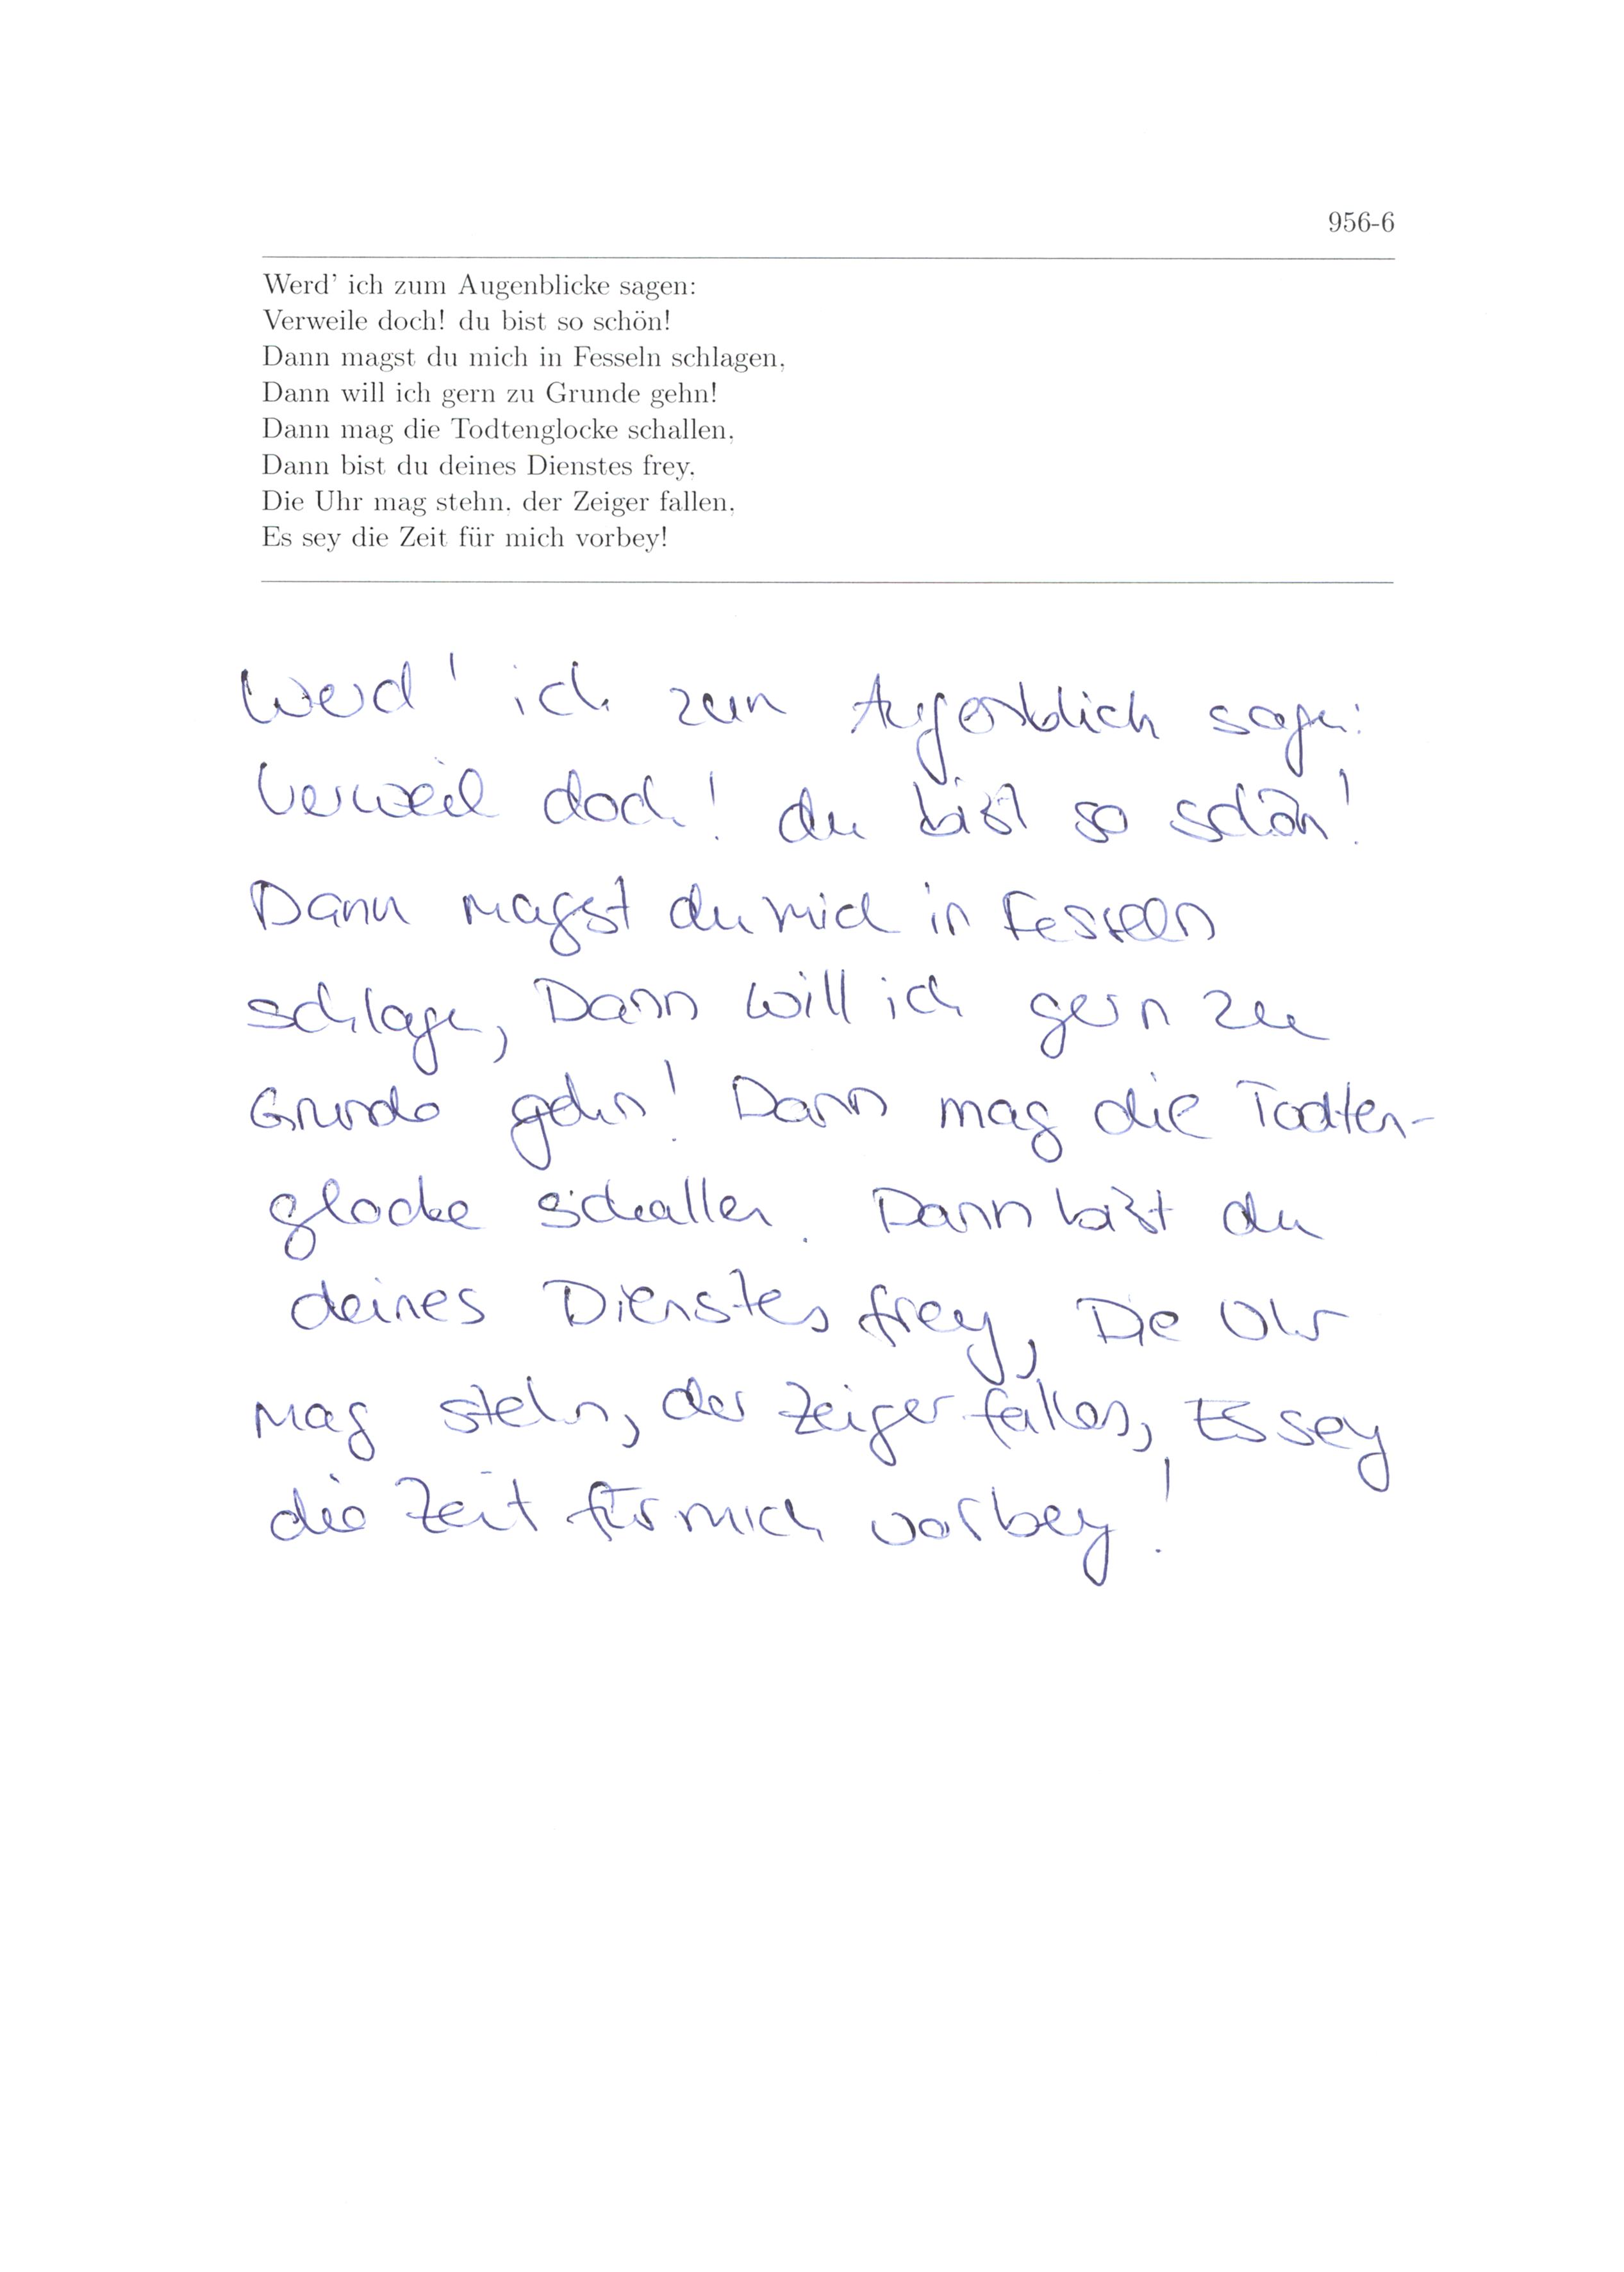 956-6
Werd' ich zum Augenblicke sagen:
Verweile doch! du bist so schön!
Dann magst du mich in Fesseln schlagen,
Dann will ich gern zu Grunde gehn!
Dann mag die Todtenglocke schallen,
Dann bist du deines Dienstes frey,
Die Uhr mag stehn, der Zeiger fallen,
Es sey die Zeit für mich vorbey!
Werd' ich zum Augenblick sagen:
Verweil doch! du bist so schön!
Dann magst du mich in Fesseln
schlagen, Dann will ich gern zu
Grunde gehn! Dann mag die Todten-
glocke schallen. Dann bist du
deines Dienstes frey, Die Uhr
mag stehn, der Zeiger fallen, Es sey
die Zeit für mich vorbey!